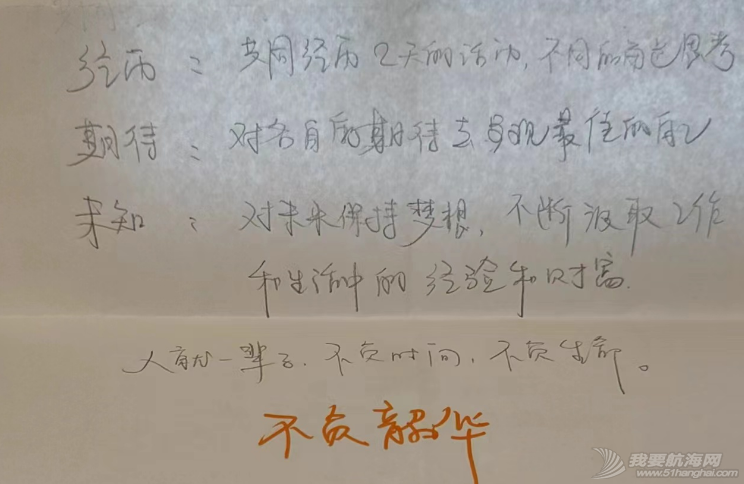 经历：共同经历2天的活动，不同的角色思考
期待：对各自的期待去实现最佳的自己
未知：对未来保持梦想，不断汲取工作
和生活中的经验和财富.
人就一辈子.不负时间，不负生命。
不负韶华
我要航海网
www.51hanghai.com